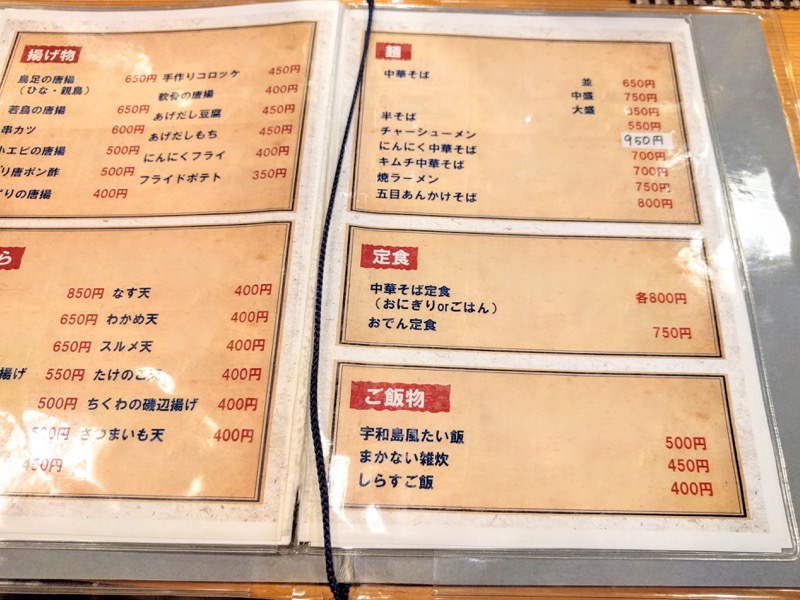 揚げ物
鳥足の唐揚 650円 手作りコロッケ 450円
（ひな・親鳥） 軟骨の唐揚 400円
若鳥の唐揚 650円 あげだし豆腐 450円
串カツ 600円 あげだしもち 450円
ホエビの唐揚 500円 にんにくフライ 400円
リ唐ポン酢 500円 フライドポテト 350円
りの唐揚 400円
ら
850円 なす天 400円
650円 わかめ天 400円
650円 スルメ天 400円
揚げ 550円 たけのこ天 400円
500円 ちくわの磯辺揚げ 400円
500円 さつまいも天 400円
450円
麺
中華そば 並 650円
中盛 750円
大盛 850円
半そば 550円
チャーシューメン 950円
にんにく中華そば 700円
キムチ中華そば 700円
焼ラーメン 750円
五目あんかけそば 800円
定食
中華そば定食 各800円
（おにぎりorごはん）
おでん定食 750円
ご飯物
宇和島風たい飯 500円
まかない雑炊 450円
しらすご飯 400円